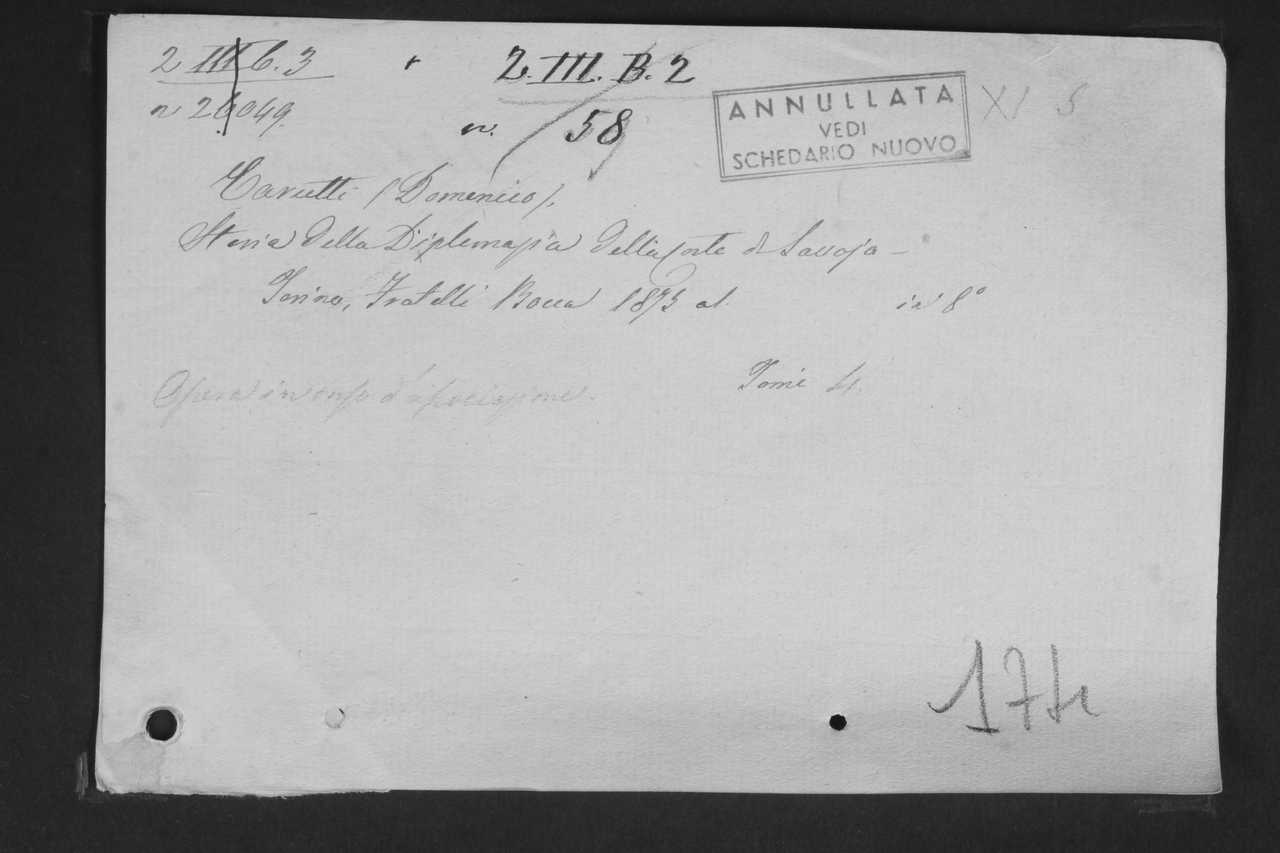 2 III b. 3
2. III. B. 2
n 26049.
n. 58
ANNULLATA
VEDI
SCHEDARIO NUOVO
XI 5
Carutti (Domenico).
Storia della Diplomazia della Corte di Savoja –
Torino, Fratelli Bocca 1875 al. in 8°
Tomi 4.
Opera in corso d'associazione.
174